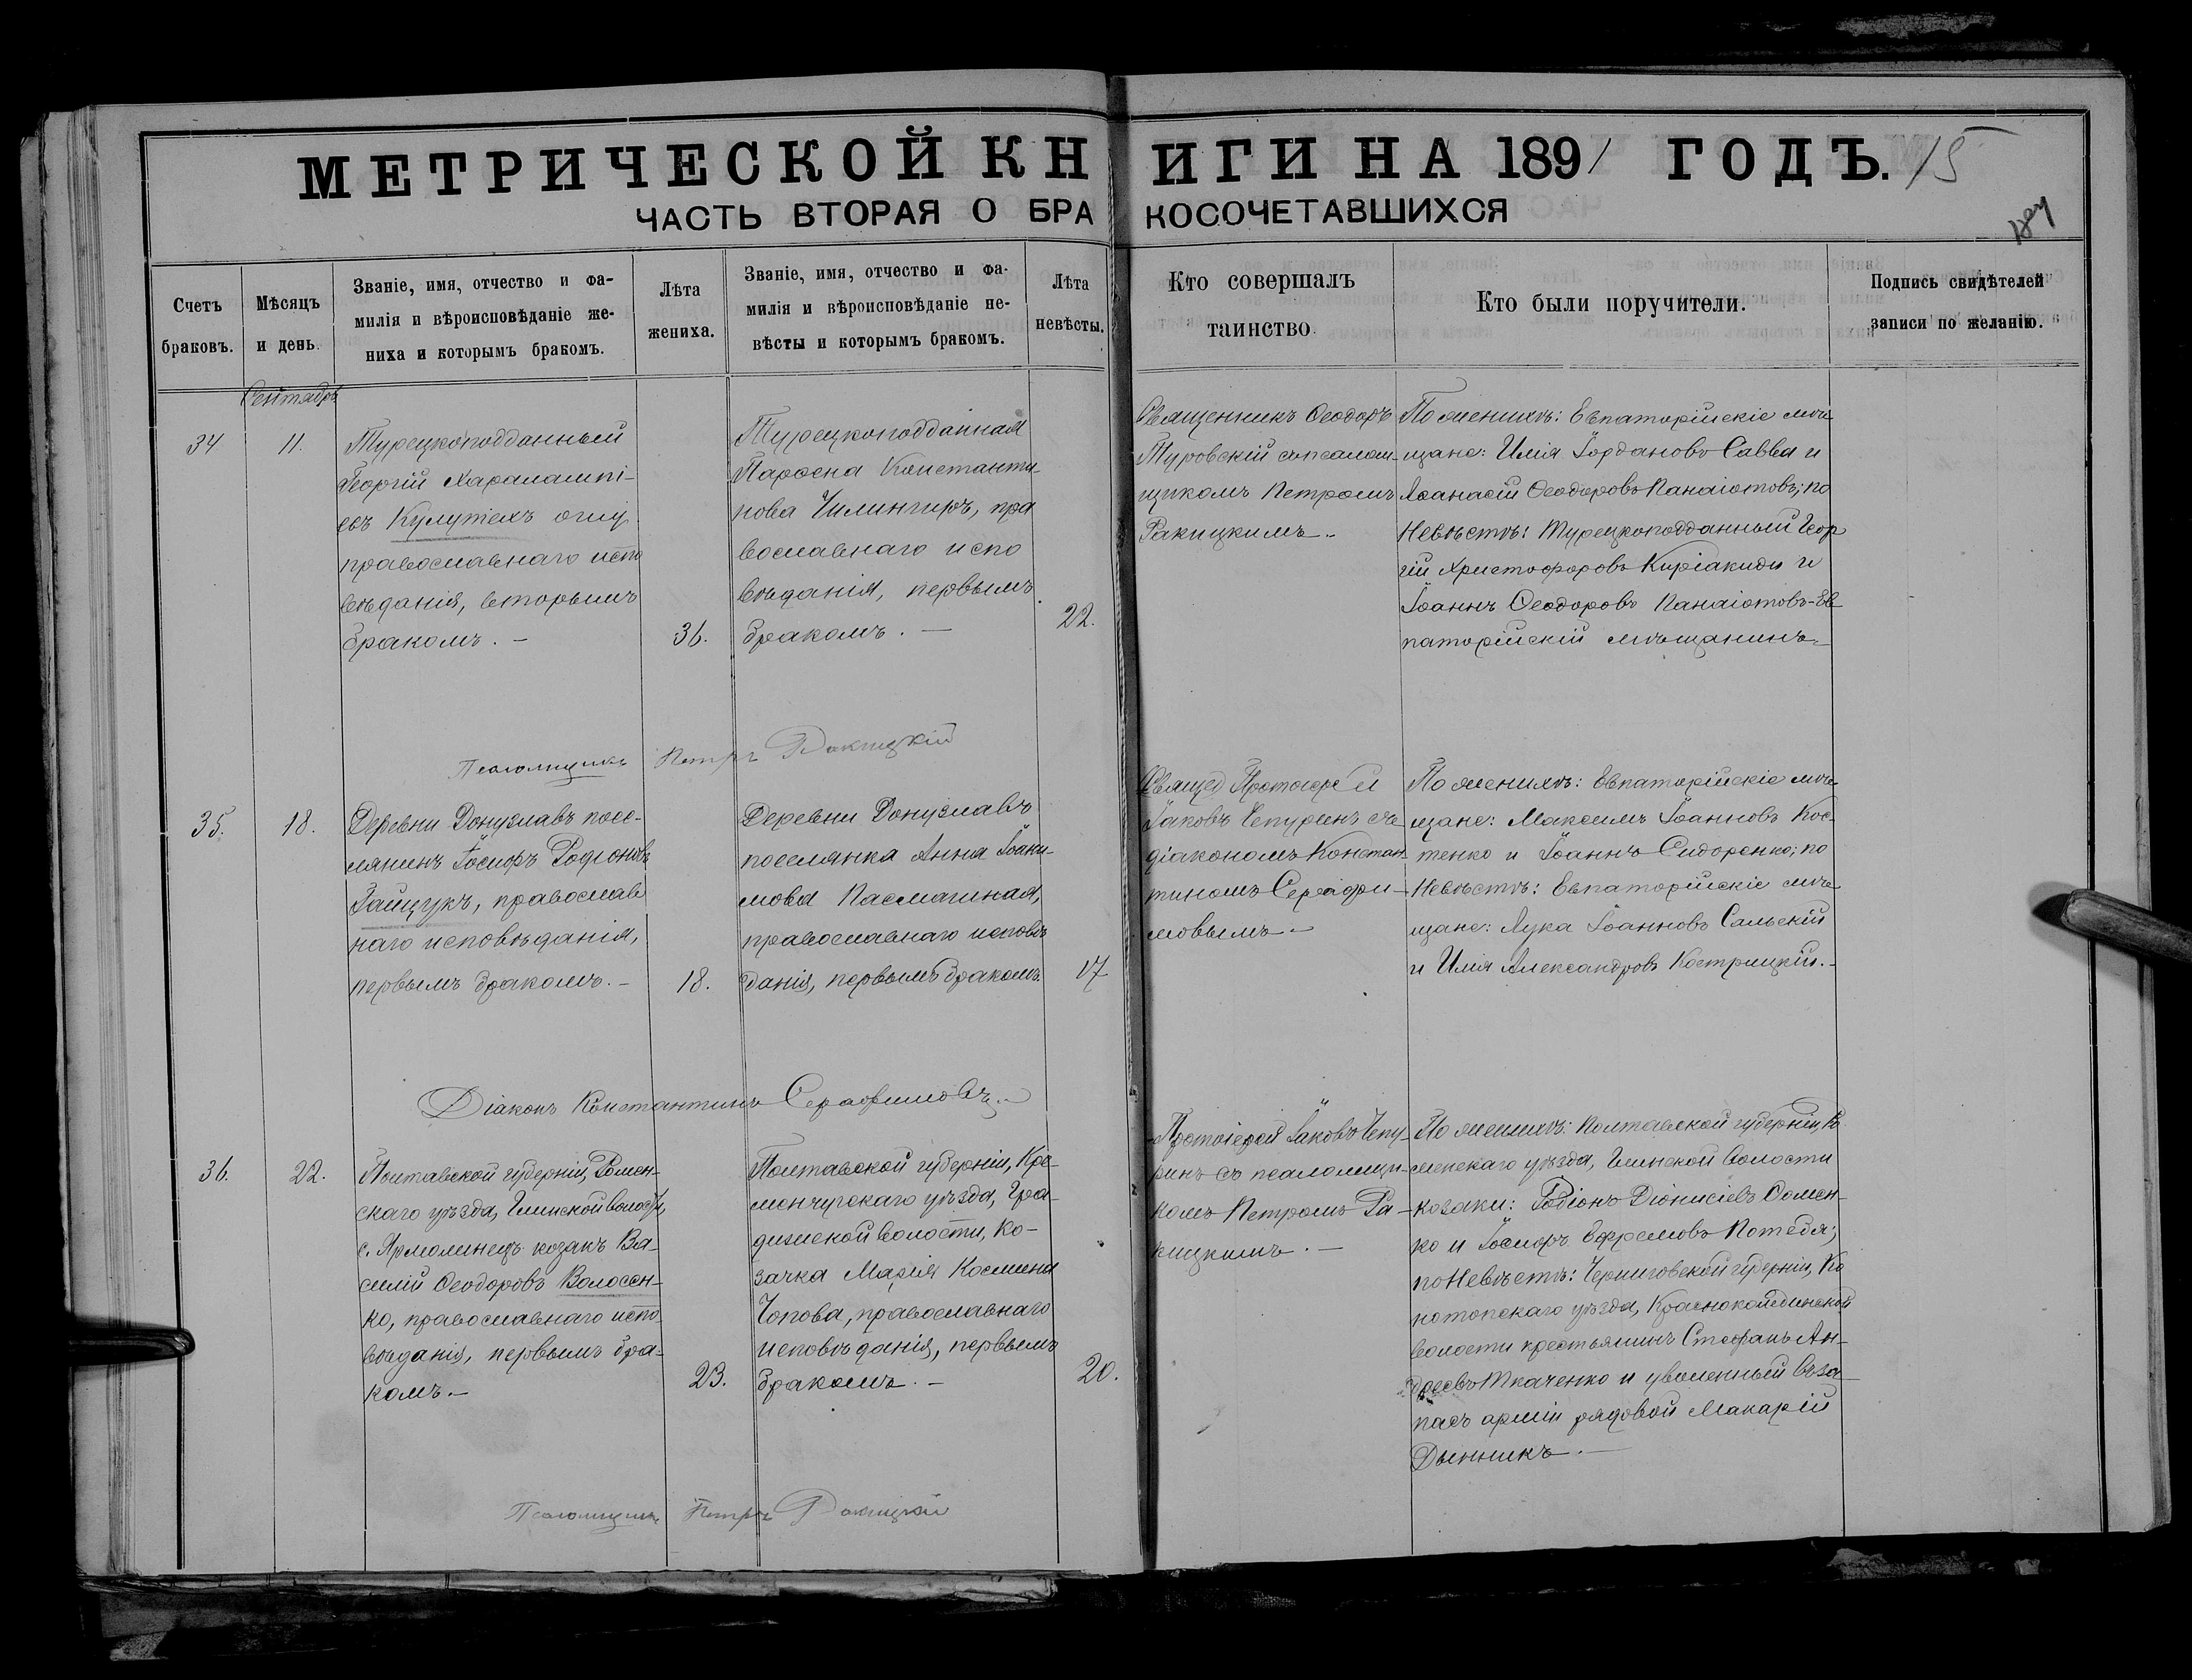 МЕТРИЧЕСКОЙ КНИГИ НА 1891 ГОДЪ. 15
ЧАСТЬ ВТОРАЯ О БРАКОСОЧЕТАВШИХСЯ
Счетъ
браковъ.
Мѣсяцъ
и день.
Званіе, имя, отчество и фа-
милія и вѣроисповѣданіе же-
ниха и которымъ бракомъ.
Лѣта
жениха.
Званіе, имя, отчество и фа-
милія и вѣроисповѣданіе не-
вѣсты и которымъ бракомъ.
Лѣта
невѣсты.
Кто совершалъ
таинство.
Кто были поручители.
Подпись свидѣтелей
записи по желанію.
Сентябрь
34
11.
Турецкоподданный
Георгій Харалампі-
евъ
православнаго испо
вѣданія, вторымъ
бракомъ. –
36.
Турецкоподданная
Параскева Константи-
нова Чилингиръ, пра
вославнаго испо
вѣданія, первымъ
бракомъ. –
22.
Священникъ Ѳеодоръ
Туровскій съ псалом-
щикомъ Петромъ
Ракицкимъ.
По женихѣ: Евпаторійскіе мѣ-
щане: Илія Іордановъ Савва и
Аѳанасій Ѳеодоровъ Панаіотовъ; по
Невѣстѣ: Турецкоподданный Геор
гій Христофоровъ Киріакиди и
Іоаннъ Ѳеодоровъ Панаіотовъ-Ев
паторійскій мѣщанинъ
Псаломщикъ Петръ Ракицкій
35.
18.
Деревни Донузлавъ посе-
лянинъ Іосифъ Родіоновъ
Гайцукъ, православ
наго исповѣданія,
первымъ бракомъ. –
18.
Деревни Донузлавъ
поселянка Анна Іоаки-
мова Пасмагиная,
православнаго исповѣ
данія, первымъ бракомъ.
17
Протоіерей
Іаковъ Чепуринъ съ
діакономъ Констан-
тиномъ Серафи-
мовымъ –
По женихѣ: Евпаторійскіе мѣ-
щане: Максимъ Іоанновъ Кос-
тенко и Іоаннъ Сидоренко; по
Невѣстѣ: Евпаторійскіе мѣ-
щане: Лука Іоанновъ Сальскій
и Илія Александровъ Кострицкій. –
Діаконъ Константинъ Серафимовъ
36.
22.
Полтавской губерніи, Ромен-
скаго уѣзда, Глинской волости,
с. Ярмолинецъ козакъ Ва-
силій Ѳеодоровъ Волосен-
ко, православнаго испо
вѣданія, первымъ бра-
комъ. –
23.
Полтавской губерніи, Кре-
менчугскаго уѣзда, Гра-
дизской волости, ко-
зачка Марія Космина
Чопова, православнаго
исповѣданія, первымъ
бракомъ. –
20.
Протоіерей Іаковъ Чепу-
ринъ съ псаломщи-
комъ Петромъ Ра-
кицкимъ. –
По женихѣ: Полтавской губерніи, Ро
менскаго уѣзда, Глинской волости
козаки: Родіонъ Діонисіевъ Сомен-
ко и Іосифъ Ефремовъ Потебя;
по Невѣстѣ: Черниговской губерніи, Ко
нотопскаго уѣзда, Красноколядинской
волости крестьянинъ Стефанъ Ан-
дреевъ Ткаченко и уволенный въ за-
пасъ арміи рядовой Макарій
Дынникъ. –
Псаломщикъ Петръ Ракицкій